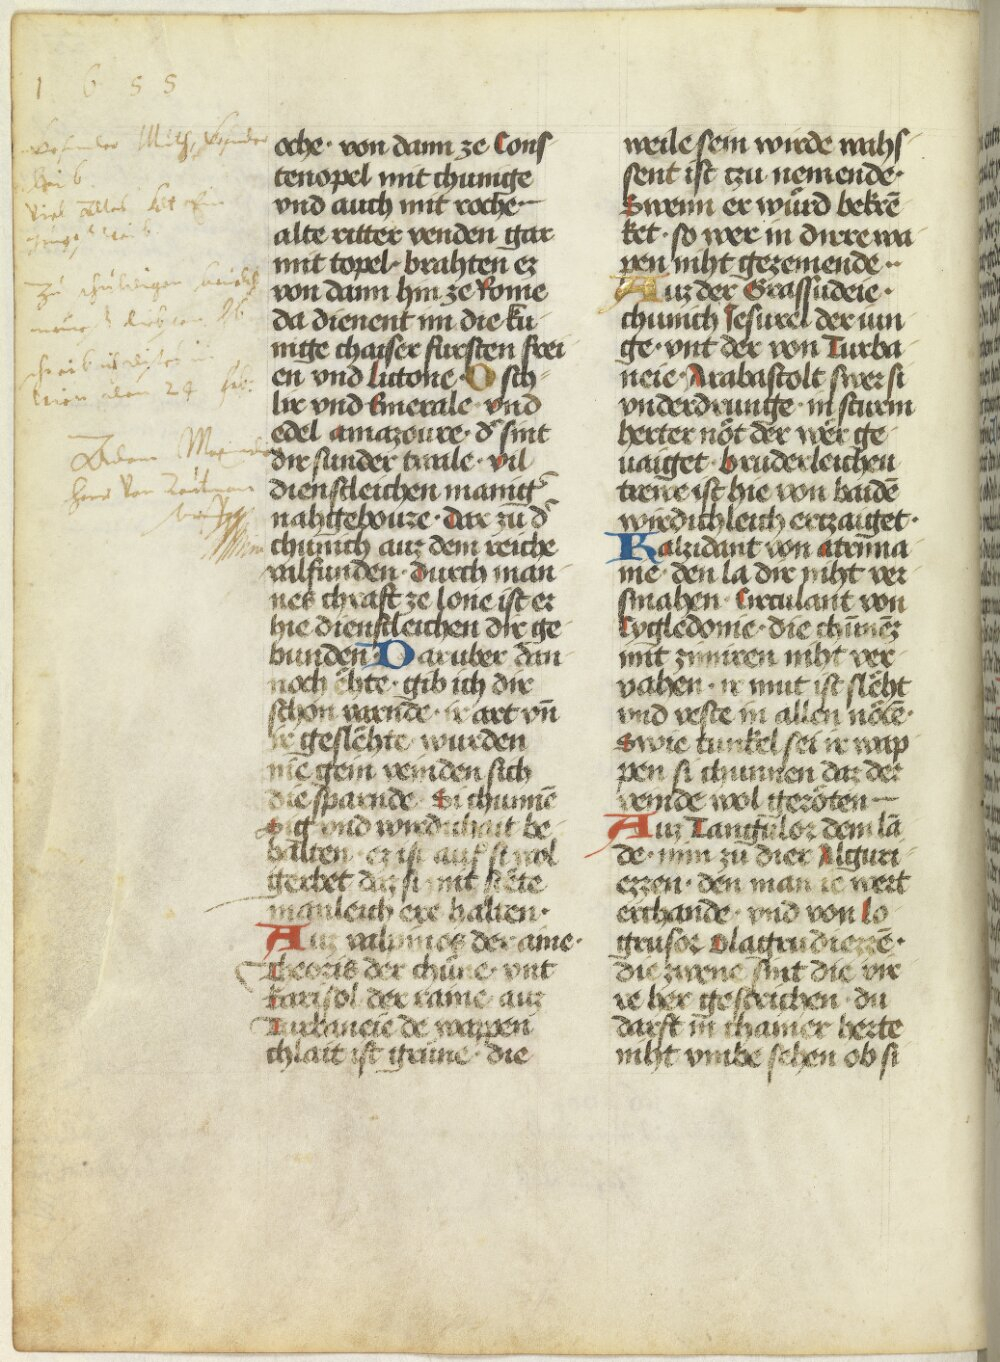 1 6 5 5
oche · von dann ze Cons
tenopel mit chunige
vnd auch mit roche ·
alte ritter venden gar
mit topel · brahten ez
von dann hin ze Rome
da dienent im die ku
nige chaiser fursten frei
en vnd lutone · O sch
lir vnd Emerale · vnd
edel amazoure · d͛ sint
dir sunder twale · vil
dienstleichen manig͛
nahgebouze · dar zu d͛
chunich auz dem reiche
vilfunden · durch man
nes chraft ze lone ist er
hie dienstleichen dir ge
bunden · Daruber dan
noch ehte · gib ich dir
schon varnde · ir art vn̄
ir geslehte · wurden
nie gein veinden sich
die sparnde · Si chunnē
sig vnd wirdichait be
halten · ez ist auf si wol
gerbet daz si mit stete
manleich ere halten ·
Auz valpinos der aine ·
theoris der chune · vnt
karisol der raine auz
Turkaneie de wappen
chlait ist grune · die
weile sein wirde wahs
sent ist tzu nemende ·
Swenn er wurd bekrē
ket · so wer in dirre wa
pen niht gezemende ·
Auz der Grassudeie ·
chunich Jesurel der iun
ge · vnt der von Turka
neie · Arabastolt swer si
vnderdrunge · in sturm
herter not der wer ge
uaiget · bruderleichen
trewe ist hie von baidē
wirdichleich ertzaiget ·
Kalzidant von atrinna
nie · den la dir niht ver
smahen · Circulant von
Cygledonie · die chunez
mit zimiren niht ver
vahen · ir mut ist sleht
vnd veste in allen noten ·
Swie tunkel sei ir wap
pen si chunnen daz der
veinde wol geroten
Auz Tangulor dem lā
de · nim zu dier Alguri
ezzen · den man ie wert
erchande · vnd von lo
grusoz Olagrudiezzē ·
die zwene sint die vir
re her gestrichen · du
darst in chainer herte
niht vmbe sehen ob si